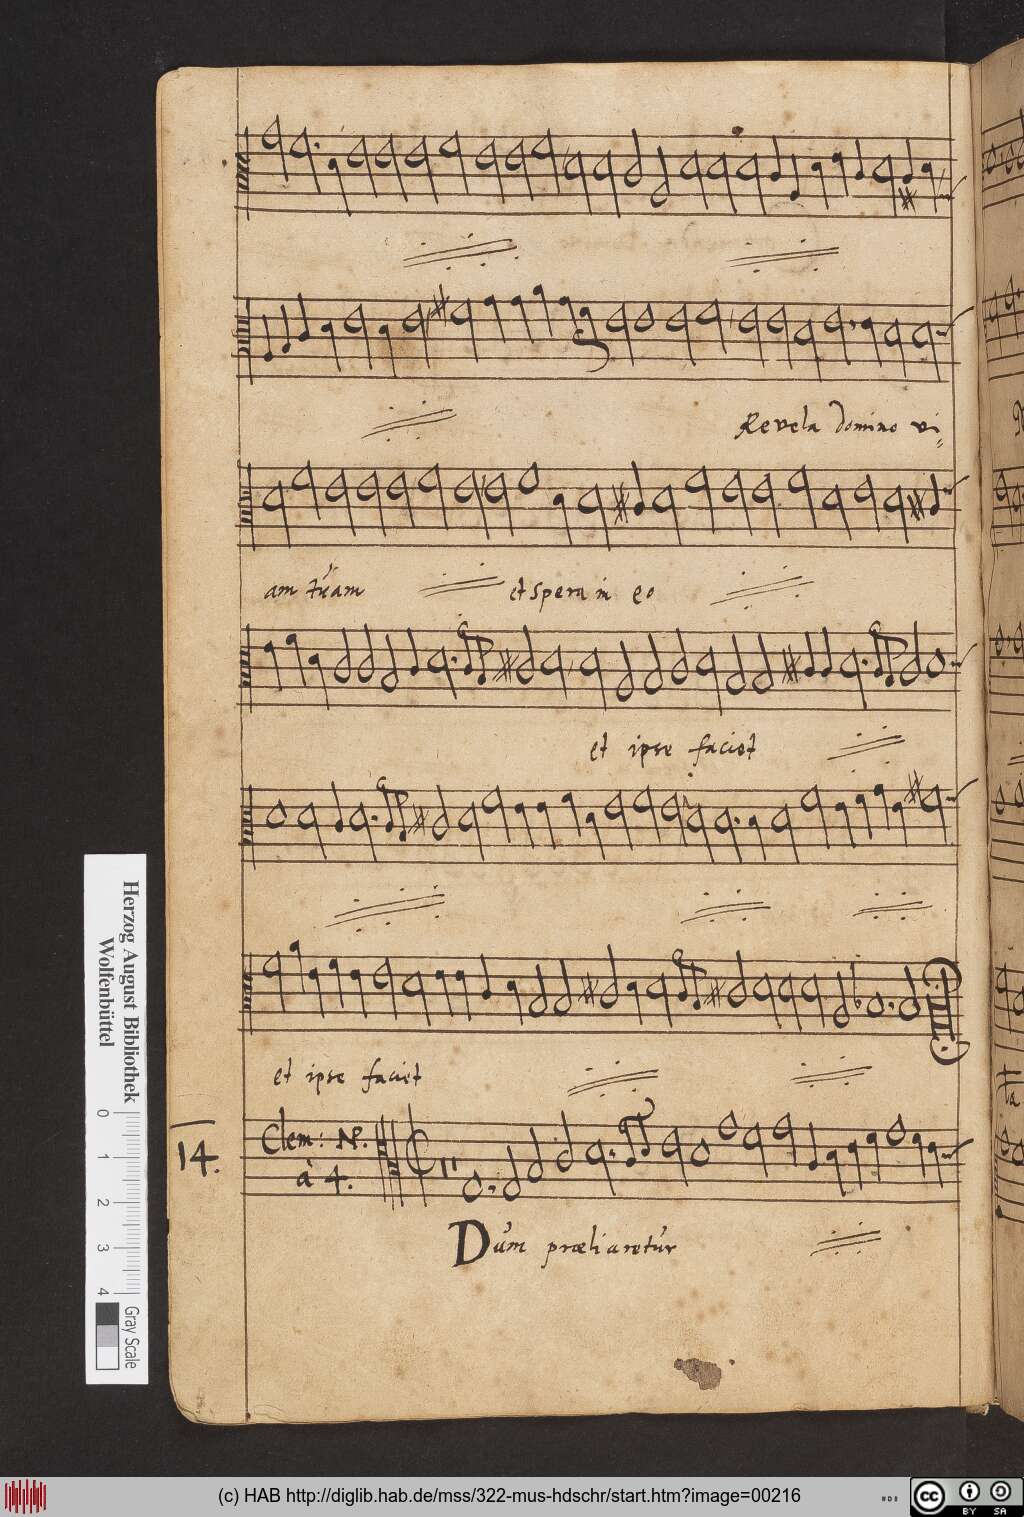 Revela domino vi-
am tuam et spera in eo
et ipse faciet
et ipse faciet
14.
Clem: N.P.
à 4.
Dum præliaretur
Herzog August Bibliothek
Wolfenbüttel
0 1 2 3 4
Gray Scale
(c) HAB http://diglib.hab.de/mss/322-mus-hdschr/start.htm?image=00216
cc BY SA